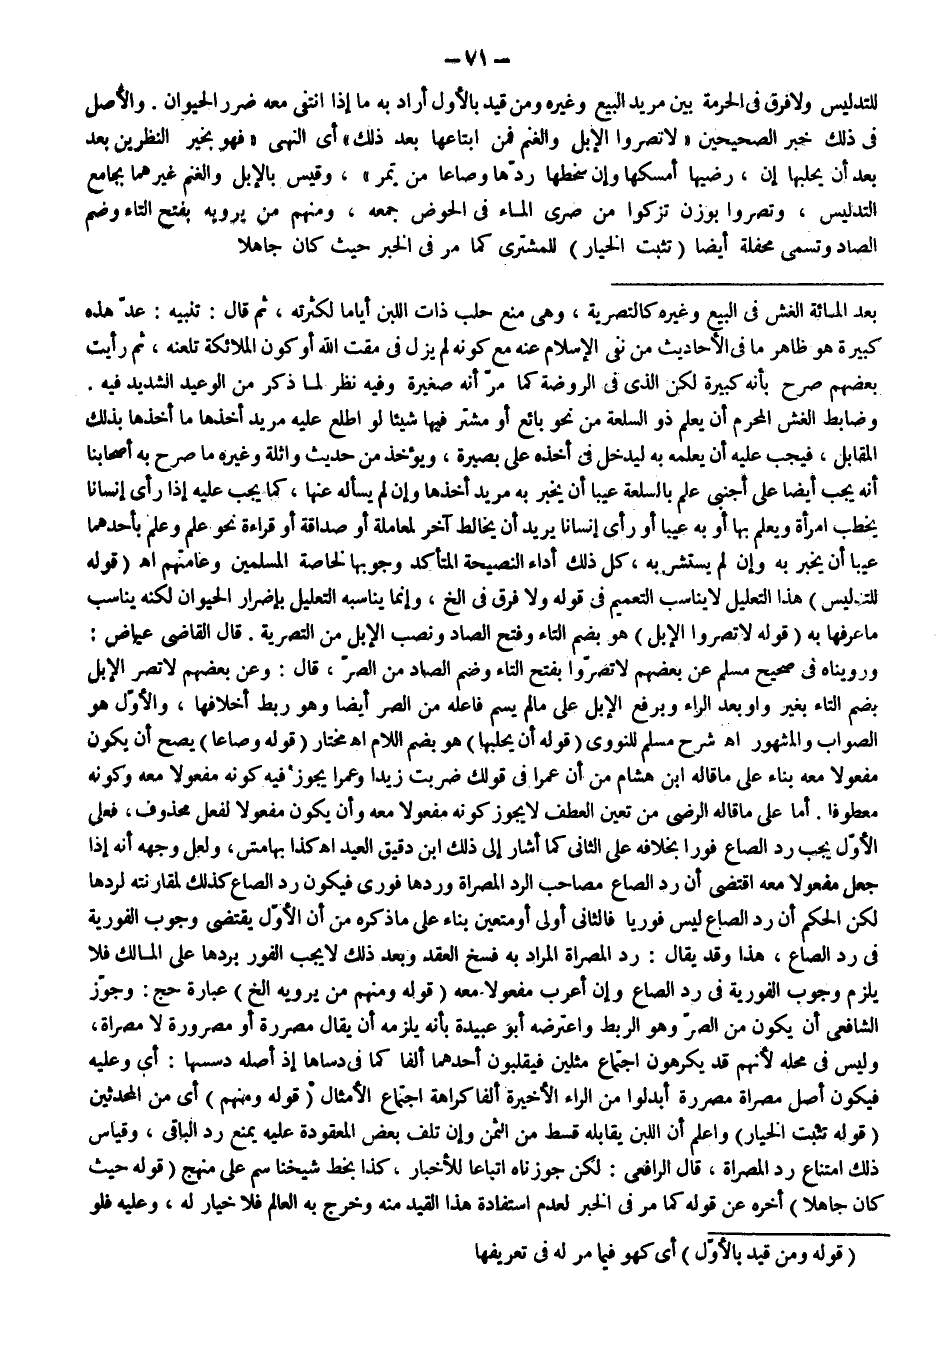 - ٧١ -
للتدليس ولافرق فى الحرمة بين مريد البيع وغيره ومن قيد بالأول أراد به ما إذا انتفى معه ضرر الحيوان . والأصل
فى ذلك خبر الصحيحين « لاتصروا الإبل والغنم فمن ابتاعها بعد ذلك» أى النهى « فهو بخير النظرين بعد
بعد أن يحلبها إن ، رضيها أمسكها وإن سخطها ردّها وصاعا من تمر» ، وقيس بالإبل والغنم غيرهما بجامع
التدليس ، وتصروا بوزن تزكوا من صرى الماء فى الحوض جمعه ، ومنهم من يرويه بفتح التاء وضم
الصاد وتسمى محفلة أيضا ( تثبت الخيار ) للمشترى كما مر فى الخبر حيث كان جاهلا
بعد المائة الغش فى البيع وغيره كالتصرية ، وهى منع حلب ذات اللبن أياما لكثرته ، ثم قال : تنبيه : عدّ هذه
كبيرة هو ظاهر ما فى الأحاديث من نفى الإسلام عنه مع كونه لم يزل فى مقت الله أو كون الملائكة تلعنه ، ثم رأيت
بعضهم صرح بأنه كبيرة لكن الذى فى الروضة كما مرّ أنه صغيرة وفيه نظر لما ذكر من الوعيد الشديد فيه .
وضابط الغش المحرم أن يعلم ذو السلعة من نحو بائع أو مشتر فيها شيئا لو اطلع عليه مريد أخذها ما أخذها بذلك
المقابل ، فيجب عليه أن يعلمه به ليدخل فى أخذه على بصيرة ، ويؤخذ من حديث واثلة وغيره ما صرح به أصحابنا
أنه يجب أيضا على أجنبى علم بالسلعة عيبا أن يخبر به مريد أخذها وإن لم يسأله عنها ، كما يجب عليه إذا رأى إنسانا
يخطب امرأة ويعلم بها أو به عيبا أو رأى إنسانا يريد أن يخالط آخر لمعاملة أو صداقة أو قراءة نحو علم وعلم بأحدهما
عيبا أن يخبر به وإن لم يستشر به ، كل ذلك أداء للنصيحة المتأكد وجوبها لخاصة المسلمين وعامتهم اه ( قوله
للتدليس ) هذا التعليل لايناسب التعميم فى قوله ولا فرق فى الخ ، وإنما يناسبه التعليل بإضرار الحيوان لكنه يناسب
ماعرفها به ( قوله لاتصروا الإبل ) هو بضم التاء وفتح الصاد ونصب الإبل من التصرية . قال القاضى عياض :
ورويناه فى صحيح مسلم عن بعضهم لاتصرّوا بفتح التاء وضم الصاد من الصرّ ، قال : وعن بعضهم لاتصر الإبل
بضم التاء بغير واو بعد الراء وبرفع الإبل على مالم يسم فاعله من الصر أيضا وهو ربط أخلافها ، والأوّل هو
الصواب والمشهور اه شرح مسلم للنووى ( قوله أن يحلبها ) هو بضم اللام اه مختار ( قوله وصاعا ) يصح أن يكون
مفعولا معه بناء على ماقاله ابن هشام من أن عمرا فى قولك ضربت زيدا وعمرا يجوز فيه كونه مفعولا معه وكونه
معطوفا . أما على ماقاله الرضى من تعين العطف لايجوز كونه مفعولا معه وأن يكون مفعولا لفعل محذوف، فعلى
الأوّل يجب رد الصاع فورا بخلافه على الثانى كما أشار إلى ذلك ابن دقيق العيد اه كذا بهامش، ولعل وجهه أنه إذا
جعل مفعولا معه اقتضى أن رد الصاع مصاحب لرد المصراة وردها فورى فيكون رد الصاع كذلك لمقارنته لردها
لكن الحكم أن رد الصاع ليس فوريا فالثانى أولى أو متعين بناء على ماذكره من أن الأوّل يقتضى وجوب الفورية
فى رد الصاع ، هذا وقد يقال : رد المصراة المراد به فسخ العقد وبعد ذلك لايجب الفور بردها على المالك فلا
يلزم وجوب الفورية فى رد الصاع وإن أعرب مفعولا معه ( قوله ومنهم من يرويه الخ ) عبارة حج : وجوّز
الشافعى أن يكون من الصرّ وهو الربط واعترضه أبو عبيدة بأنه يلزمه أن يقال مصررة أو مصرورة لا مصراة،
وليس فى محله لأنهم قد يكرهون اجتماع مثلين فيقلبون أحدهما ألفا كما فى دساها إذ أصله دسسها : أى وعليه
فيكون أصل مصراة مصررة أبدلوا من الراء الأخيرة ألفا كراهة اجتماع الأمثال ( قوله ومنهم ) أى من المحدثين
( قوله تثبت الخيار ) واعلم أن اللبن يقابله قسط من الثمن وإن تلف بعض المعقودة عليه يمنع رد الباقى ، وقياس
ذلك امتناع رد المصراة ، قال الرافعى : لكن جوزناه اتباعا للأخبار ، كذا بخط شيخنا سم على منهج ( قوله حيث
كان جاهلا ) أخره عن قوله كما مر فى الخبر لعدم استفادة هذا القيد منه وخرج به العالم فلا خيار له ، وعليه فلو
( قوله ومن قيد بالأوّل ) أى كهو فيما مر له فى تعريفها